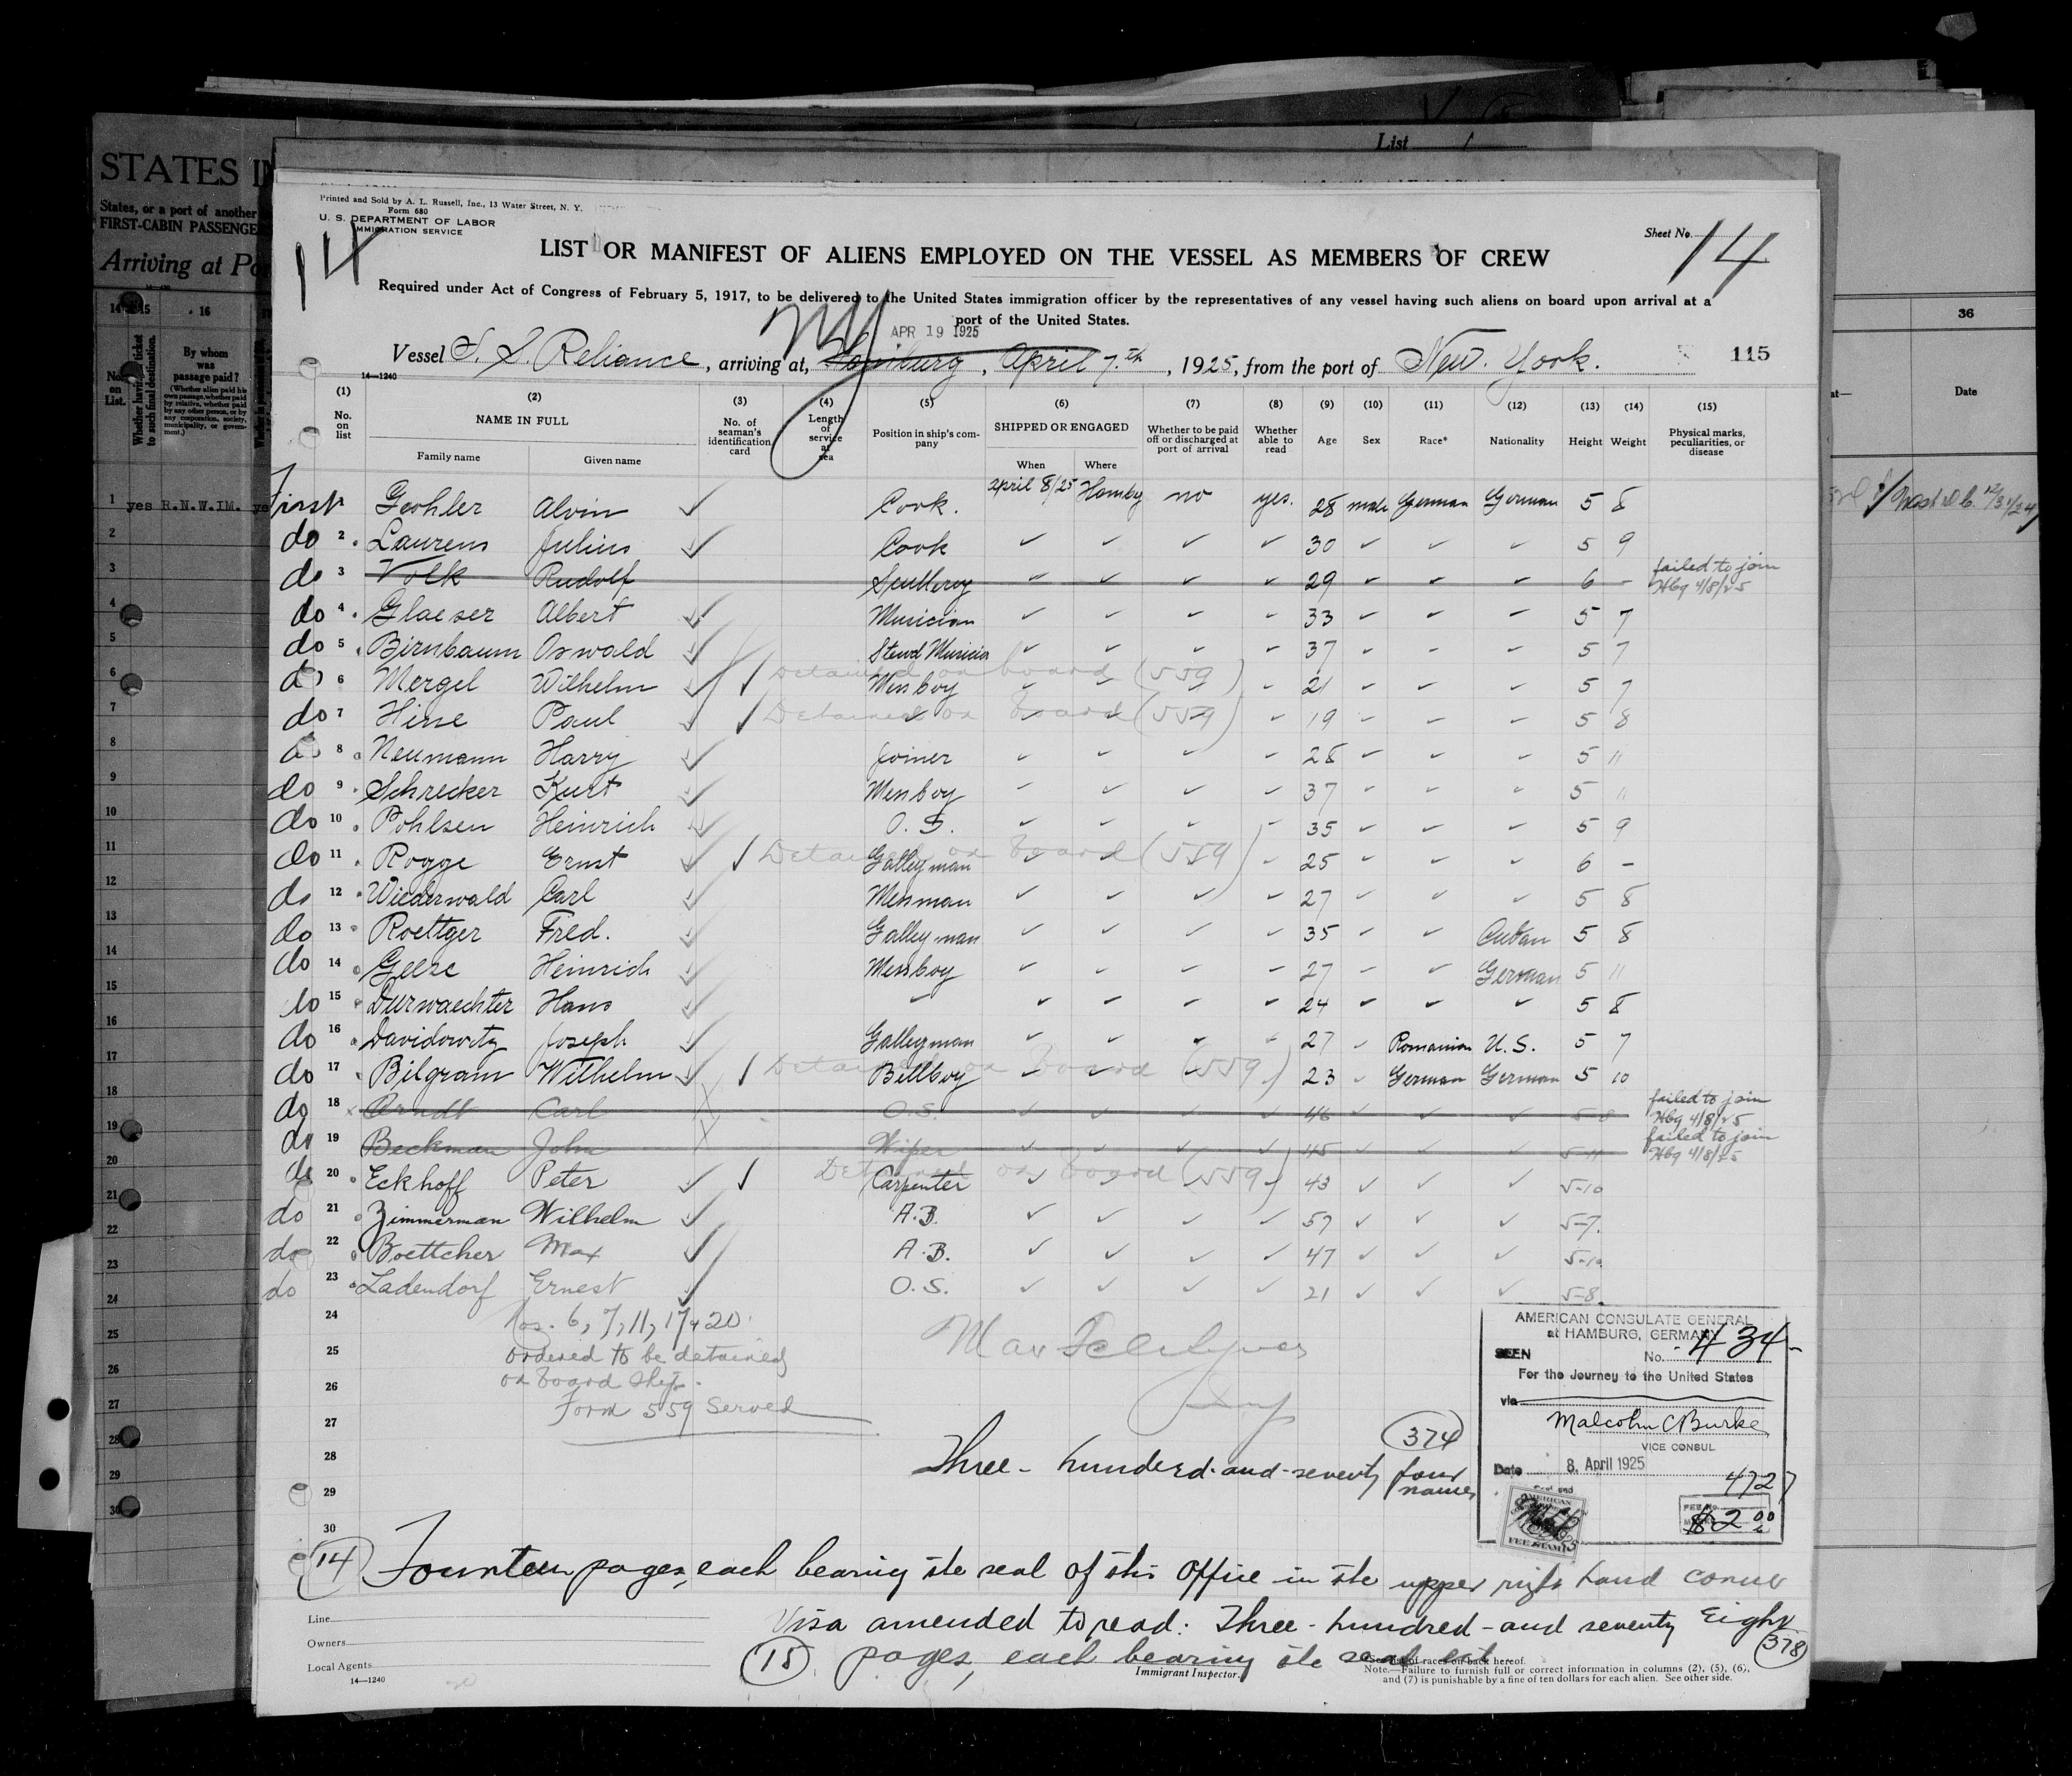 List 1
STATES IN
States, or a port of another
FIRST-CABIN PASSENGE
Arriving at Po
14 15 16
No. on List.
Whether having ticket to such final destination.
By whom was passage paid?
(Whether alien paid his own passage, whether paid by relative, whether paid by any other person, or by any corporation, society, municipality, or government.)
1 yes R.N.W.IM. ye
36
Date
Printed and Sold by A. L. Russell, Inc., 13 Water Street, N. Y.
Form 680
U. S. DEPARTMENT OF LABOR
IMMIGRATION SERVICE
14
Sheet No. 14
LIST OR MANIFEST OF ALIENS EMPLOYED ON THE VESSEL AS MEMBERS OF CREW
Required under Act of Congress of February 5, 1917, to be delivered to the United States immigration officer by the representatives of any vessel having such aliens on board upon arrival at a
port of the United States.
APR 19 1925
Vessel S. S. Reliance, arriving at, Hamburg, April 7.th, 1925, from the port of New. York.
115
14—1240
(1) (2) (3) (4) (5) (6) (7) (8) (9) (10) (11) (12) (13) (14) (15)
No. on list
NAME IN FULL
Family name
Given name
No. of seaman's identification card
Length of service at sea
Position in ship's company
SHIPPED OR ENGAGED
When
Where
Whether to be paid off or discharged at port of arrival
Whether able to read
Age
Sex
Race*
Nationality
Height
Weight
Physical marks, peculiarities, or disease
First Alvin ✓ Cook. April 8/25 Hambg no yes. 28 male German German 5 8
do 2 Laurens Julius ✓ Cook ✓ ✓ ✓ ✓ 30 ✓ ✓ ✓ 5 9
do 3 Volk Rudolf Scullery ✓ ✓ ✓ ✓ 29 ✓ ✓ ✓ 6 – failed to join Hbg 4/8/25
do 4 Glaeser Albert ✓ Musician ✓ ✓ ✓ ✓ 33 ✓ ✓ ✓ 5 7
do 5 Birnbaum Oswald ✓ Stewd Musician ✓ ✓ ✓ ✓ 37 ✓ ✓ ✓ 5 7
do 6 Mergel Wilhelm ✓ Detained on board (559) Messboy ✓ ✓ ✓ ✓ 21 ✓ ✓ ✓ 5 7
do 7 Paul ✓ Detained on board (559) ✓ ✓ ✓ ✓ ✓ 19 ✓ ✓ ✓ 5 8
do 8 Neumann Harry ✓ Joiner ✓ ✓ ✓ ✓ 28 ✓ ✓ ✓ 5 11
do 9 Schrecker Kurt ✓ Messboy ✓ ✓ ✓ ✓ 37 ✓ ✓ ✓ 5 11
do 10 Pohlsen Heinrich ✓ O. S. ✓ ✓ ✓ ✓ 35 ✓ ✓ ✓ 5 9
do 11 Rogge Ernst ✓ Detained on board (559) Galleyman ✓ ✓ ✓ ✓ 25 ✓ ✓ ✓ 6 –
do 12 Wiederwald Carl ✓ Messman ✓ ✓ ✓ ✓ 27 ✓ ✓ ✓ 5 8
do 13 Roettger Fred. ✓ Galleyman ✓ ✓ ✓ ✓ 35 ✓ ✓ Cuban 5 8
do 14 Heinrich ✓ Messboy ✓ ✓ ✓ ✓ 27 ✓ ✓ German 5 11
do 15 Durwaechter Hans ✓ ✓ ✓ ✓ ✓ ✓ 24 ✓ ✓ ✓ 5 8
do 16 Davidowitz Joseph ✓ Galleyman ✓ ✓ ✓ ✓ 27 ✓ Romanian U.S. 5 7
do 17 Bilgram Wilhelm ✓ Detained on board (559) Bellboy ✓ ✓ ✓ ✓ 23 ✓ German German 5 10
do 18 Arndt Carl O.S. ✓ ✓ ✓ ✓ 46 ✓ ✓ ✓ 5-8 failed to join Hbg 4/8/25
do 19 Beckman John Wiper ✓ ✓ ✓ ✓ 45 ✓ ✓ ✓ 5-11 failed to join Hbg 4/8/25
do 20 Eckhoff Peter ✓ Detained on board (559) Carpenter ✓ ✓ ✓ ✓ 43 ✓ ✓ ✓ 5-10
do 21 Zimmerman Wilhelm ✓ A.B. ✓ ✓ ✓ ✓ 57 ✓ ✓ ✓ 5-7.
do 22 Boettcher Max ✓ A.B. ✓ ✓ ✓ ✓ 47 ✓ ✓ ✓ 5-10
do 23 Ladendorf Ernest ✓ O.S. ✓ ✓ ✓ ✓ 21 ✓ ✓ ✓ 5-8.
24
25
26
27
28
29
30
Nos. 6, 7, 11, 17 & 20
ordered to be detained
on board ship.
Form 559 served
AMERICAN CONSULATE GENERAL
at HAMBURG, GERMANY
SEEN No. 434-
For the Journey to the United States
via
Malcolm C Burke
VICE CONSUL
Date 8. April 1925
4727
FEE No.
$2 00
AMERICAN
FEE STAMP
374
Three-hundred-and-seventy four
names
14 Fourteen pages, each bearing the seal of this office in the upper right hand corner
Visa amended to read: Three-hundred-and seventy Eight
378
15 pages, each bearing the seal etc
Line
Owners
Local Agents
14—1240
Immigrant Inspector.
*See list of races on back hereof.
Note.—Failure to furnish full or correct information in columns (2), (5), (6),
and (7) is punishable by a fine of ten dollars for each alien. See other side.